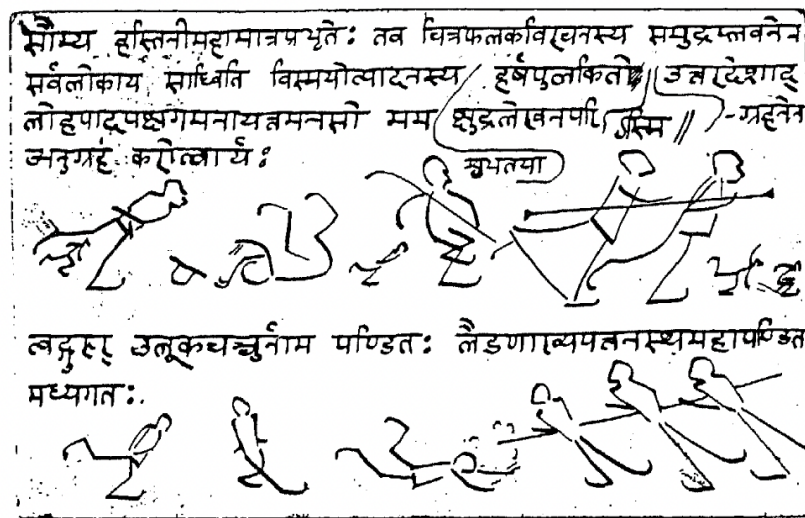 सौम्य हस्तिनीमहामात्रप्रभृतेः तव चित्रफलकविरचनस्य समुद्रप्लवनेन
सर्वलोकाय साध्विति विस्मयोत्पादनस्य हर्षपुलकितो // उत्तरदेशाद्
लोहपादपक्षगमनायत्तमनसो मम क्षुद्रलेखनपरि ऽस्मि // -ग्रहनेन
अनुग्रहं करोत्वार्यः
त्वद्गुरुर् उलूकचञ्चुर्नाम पण्डितः लैडणाख्यपत्तनस्थमहापण्डित
मध्यगतः.